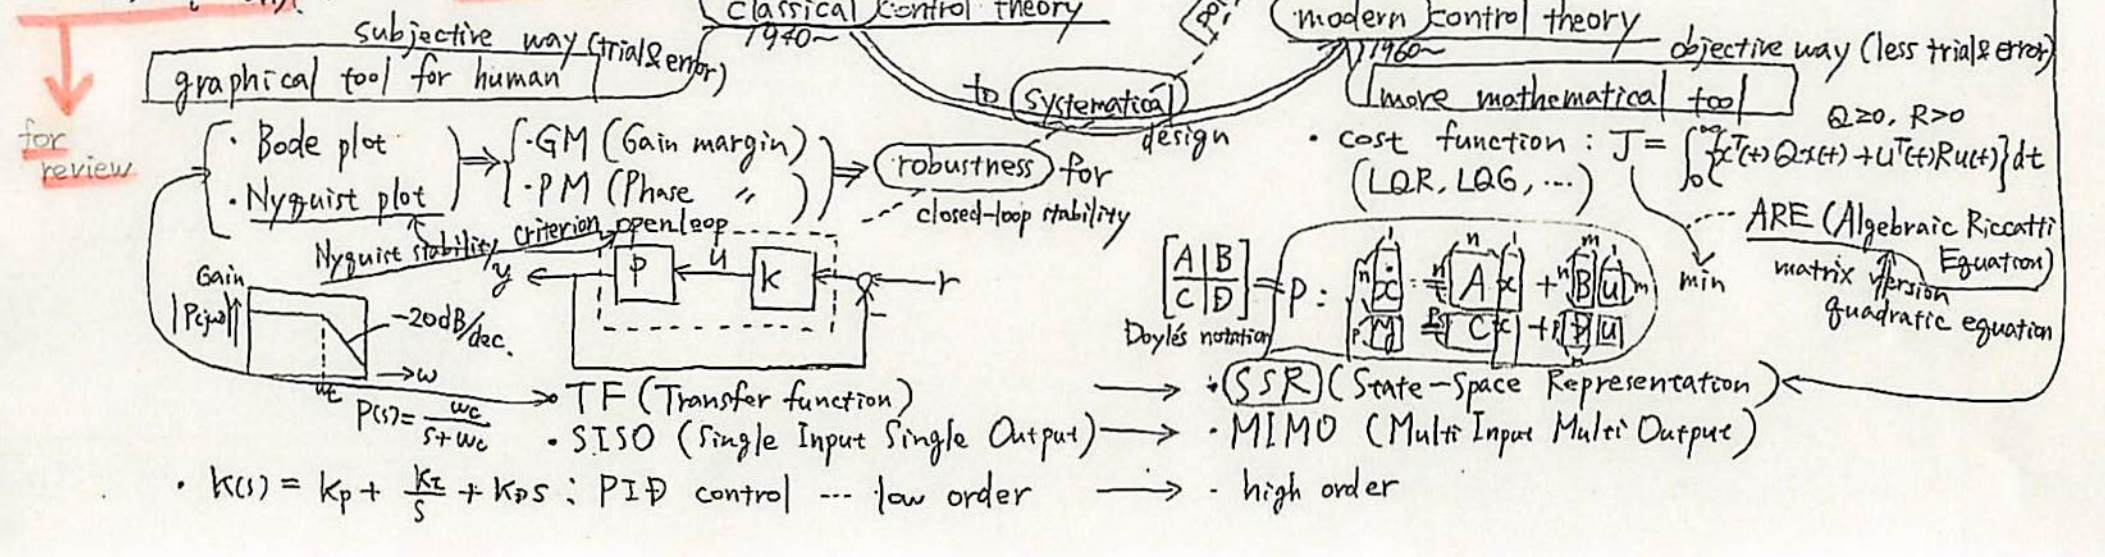 classical control theory
1940~
modern control theory
1960~
subjective way (trial & error)
graphical tool for human
to systematical
design
objective way (less trial & error)
more mathematical tool
for
review
・Bode plot
・Nyquist plot
・GM (Gain margin)
・PM (Phase 〃 )
robustness for
closed-loop stability
Nyquist stability criterion
openloop
y
P
u
K
r
-
Gain
|P(jω)|
-20dB/dec.
ωc
→ω
P(s)= ωc / (s+ωc)
・cost function : J = ∫₀^∞ {xᵀ(t)Qx(t) + uᵀ(t)Ru(t)}dt
Q≥0, R>0
(LQR, LQG, ...)
min
ARE (Algebraic Riccatti
Equation)
matrix version
quadratic equation
[A|B / C|D] = P :
Doyle's notation
ẋ = A x + B u
y = C x + D u
・TF (Transfer function) → ・SSR (State-Space Representation)
・SISO (Single Input Single Output) → ・MIMO (Multi Input Multi Output)
・K(s) = Kp + KI/s + KDs : PID control --- low order → ・high order